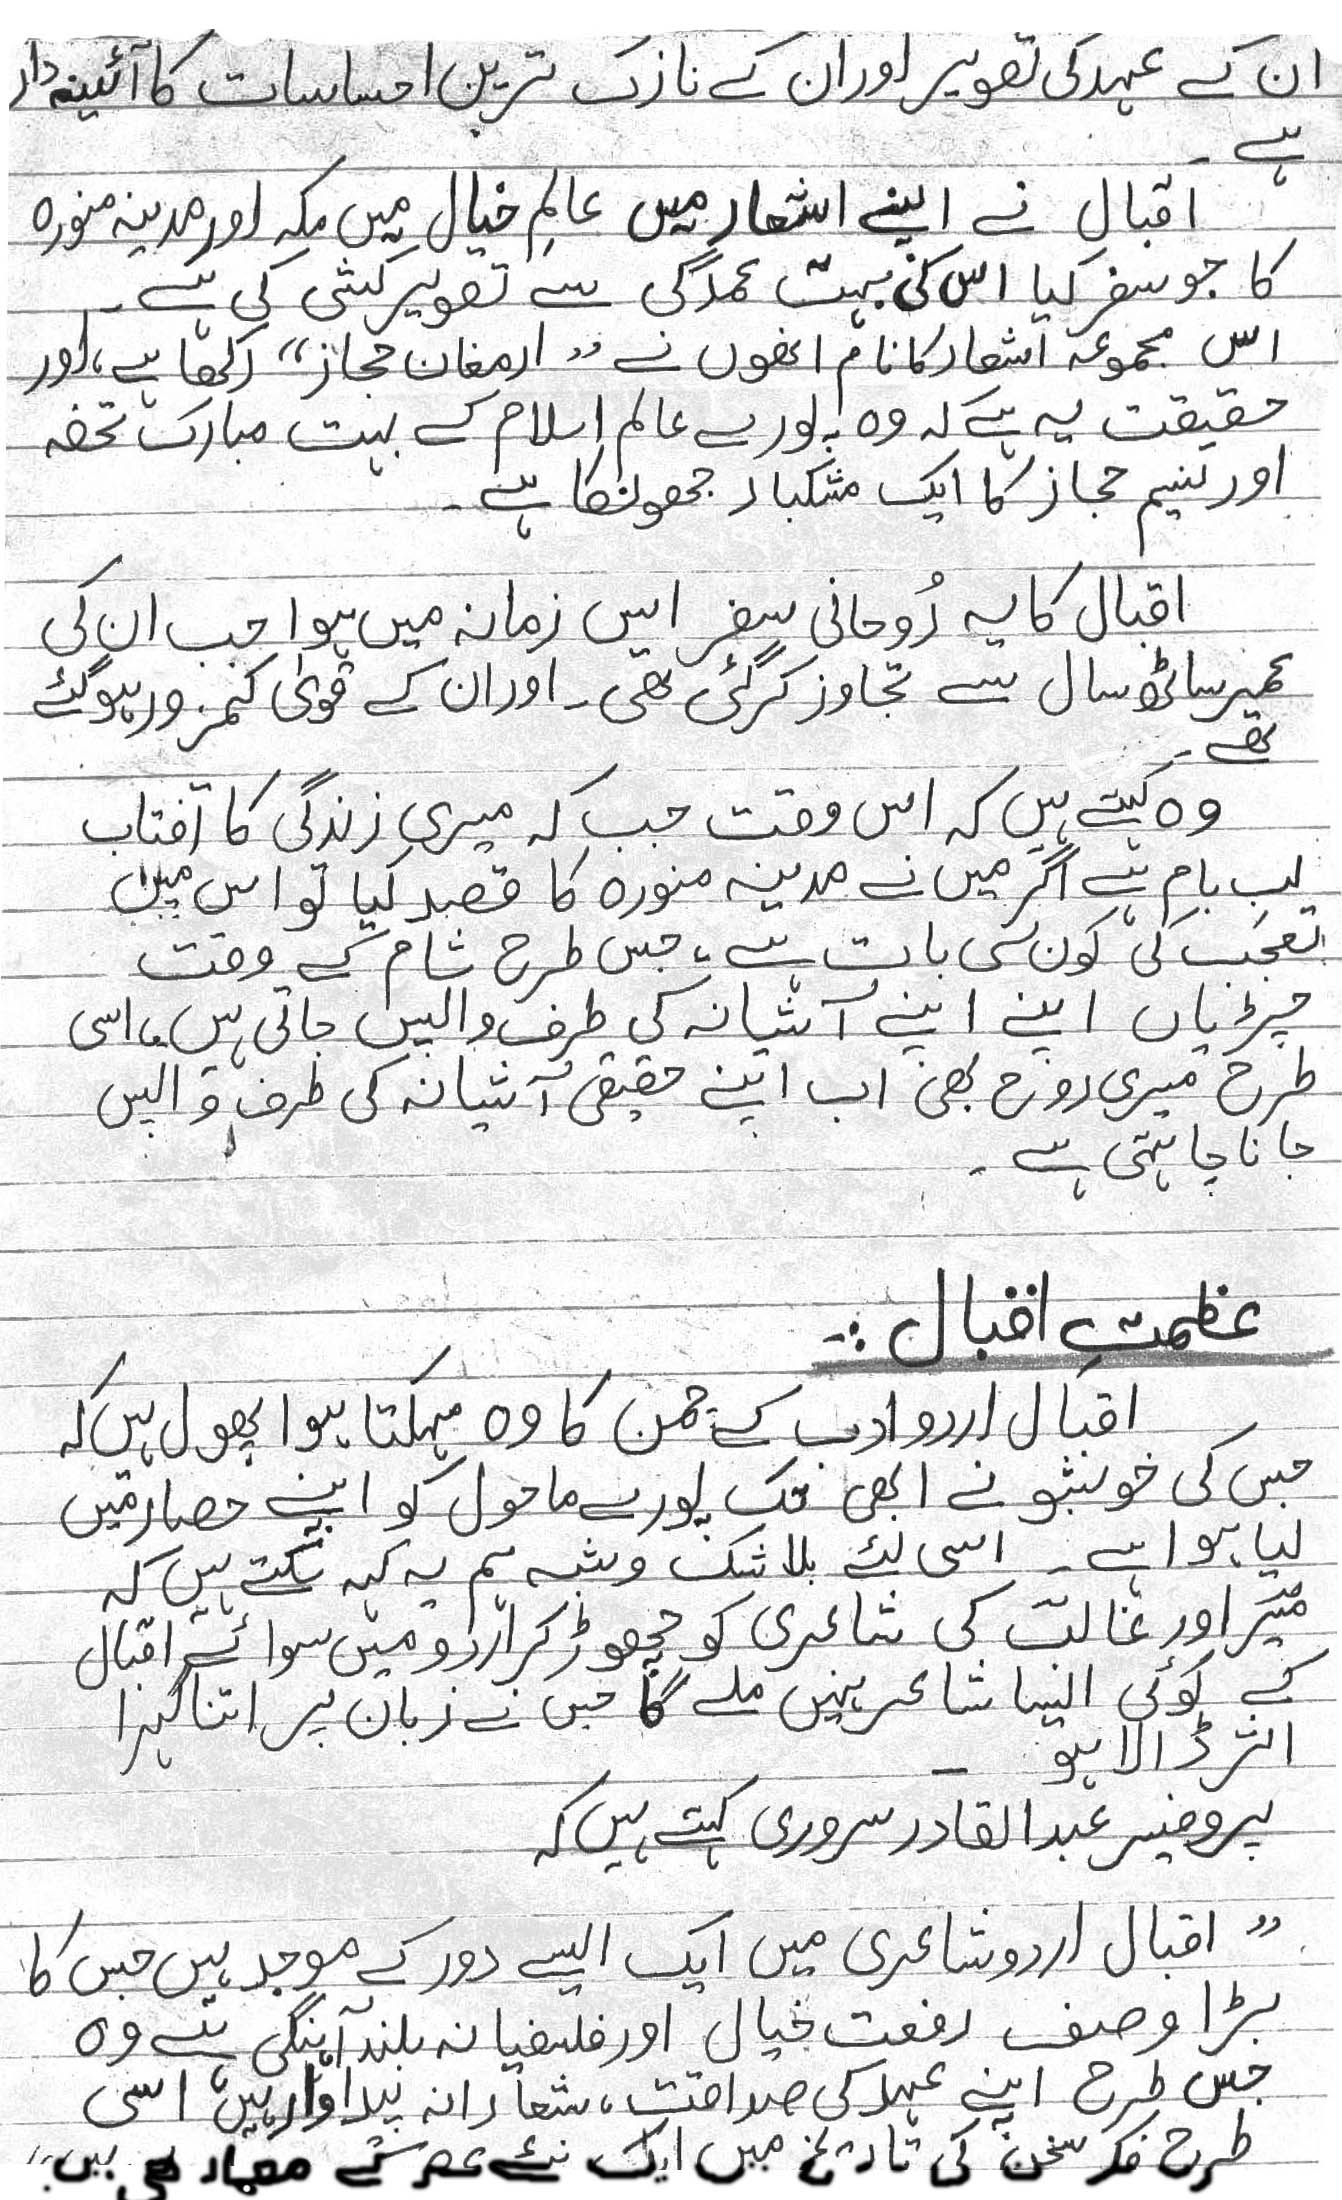 ان کے عہد کی تصویر اور ان کے نازک ترین احساسات کا آئینہ دار
ہے ۔
اقبال نے اپنے اشعار میں عالمِ خیال میں مکہ اور مدینہ منورہ
کا جو سفر کیا اس کی بہت عمدگی سے تصویر کشی کی ہے ۔
اس مجموعہ اشعار کا نام انھوں نے ”ارمغان حجاز“ رکھا ہے، اور
حقیقت یہ ہے کہ وہ پورے عالم اسلام کے بہت مبارک تحفہ
اور نسیم حجاز کا ایک مشکبار جھونکا ہے ۔
اقبال کا یہ رُوحانی سفر اس زمانہ میں ہوا جب ان کی
عمر ساٹھ سال سے تجاوز کر گئی تھی ۔ اور ان کے قویٰ کمزور ہو گئے
تھے ۔
وہ کہتے ہیں کہ اس وقت جب کہ میری زندگی کا آفتاب
لب بام ہے اگر میں نے مدینہ منورہ کا قصد کیا تو اس میں
تعجب کی کون سی بات ہے ، جس طرح شام کے وقت
چڑیاں اپنے اپنے آشیانہ کی طرف واپس جاتی ہیں ، اسی
طرح میری روح بھی اب اپنے حقیقی آشیانہ کی طرف واپس
جانا چاہتی ہے ۔
عظمتِ اقبال :-
اقبال اردو ادب کے چمن کا وہ مہکتا ہوا پھول ہیں کہ
جس کی خوشبو نے ابھی تک پورے ماحول کو اپنے حصار میں
لیا ہوا ہے ۔ اسی لئے بلا شک و شبہ ہم یہ کہہ سکتے ہیں کہ
میر اور غالب کی شاعری کو چھوڑ کر اردو میں سوائے اقبال
کے کوئی ایسا شاعر نہیں ملے گا جس نے زبان پر اتنا گہرا
اثر ڈالا ہو ۔
پروفیسر عبدالقادر سروری کہتے ہیں کہ
” اقبال اردو شاعری میں ایک ایسے دور کے موجد ہیں جس کا
بڑا وصف رفعت خیال اور فلسفیانہ بلند آہنگی ہے وہ
جس طرح اپنے عہد کی صداقت ، شعارانہ پیداوار ہیں اسی
طرح فکر سخن کی تاریخ میں ایک نئے عصر کے معمار بھی ہیں ۔“